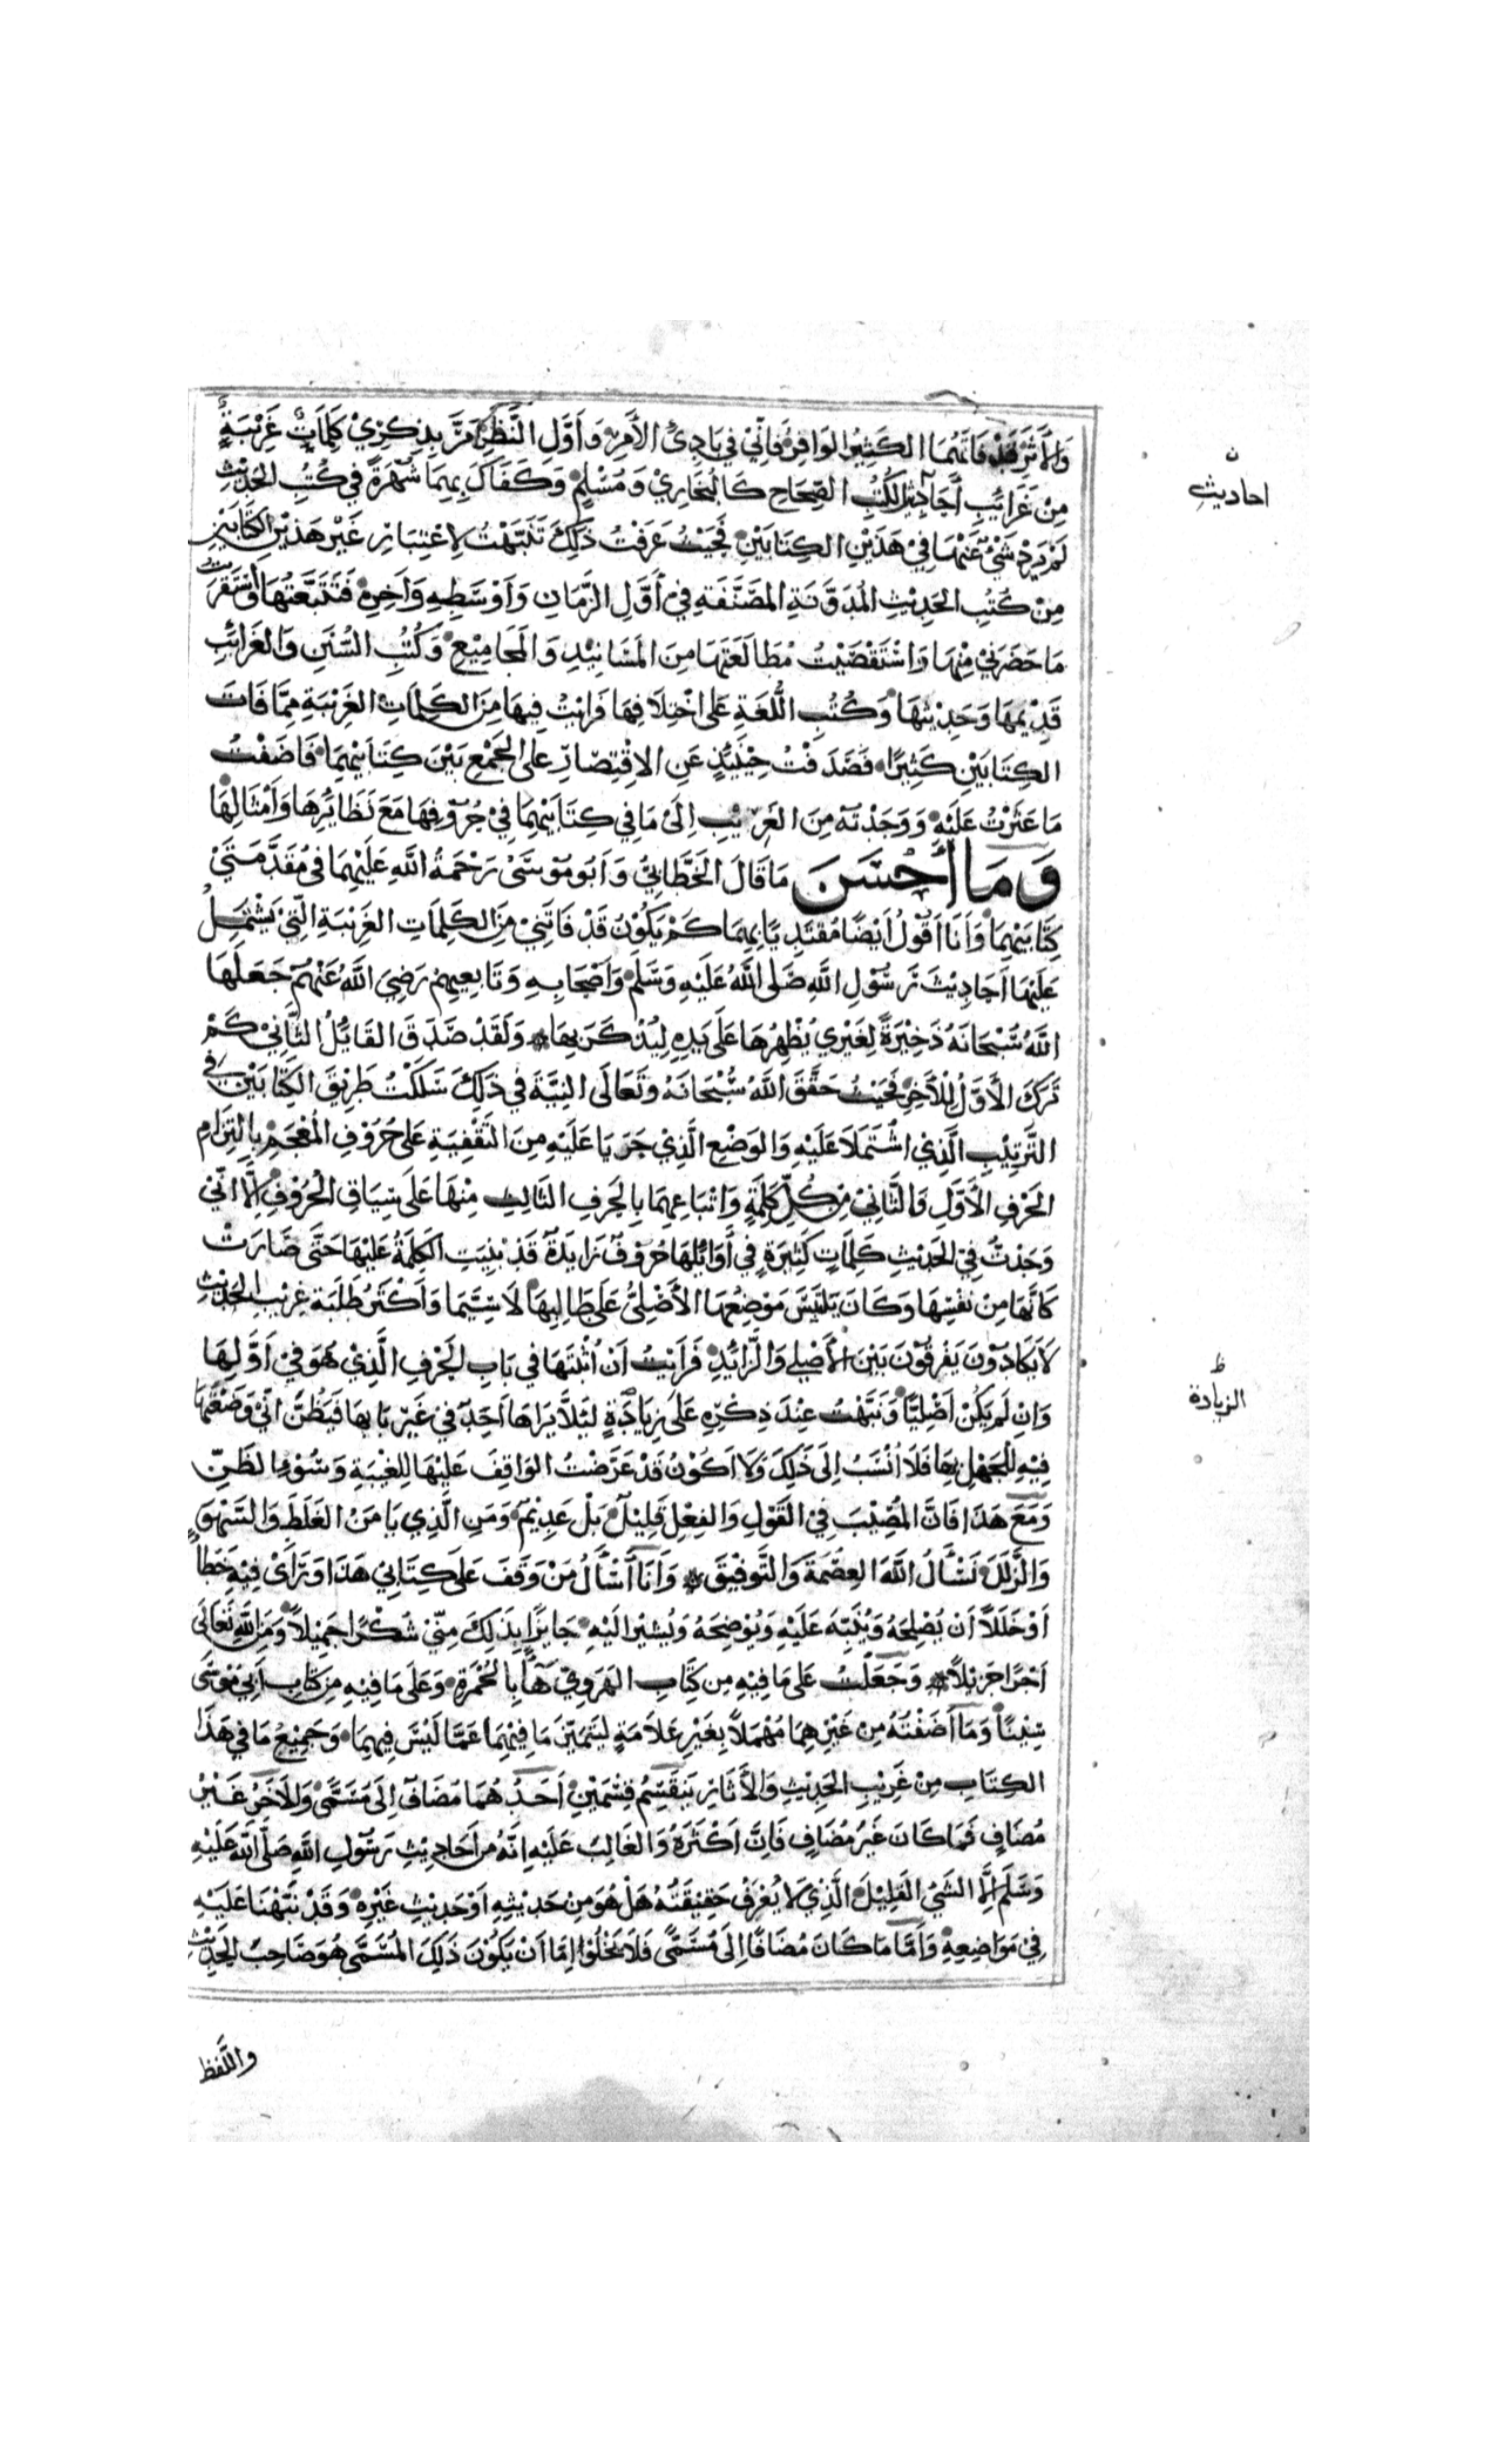 وَالأَثَرِ قَدْ فَاتَهُمَا الكَثِيرُ الوَافِرُ فَاِنِّي فِي بَادِئِ الأَمرِ وَأَوَّلِ النَّظَرِ مَرَّ بِذِكرِي كَلِمَاتٌ غَرِيْبَةٌ
مِنْ غَرَائِبِ أَحَادِيْثِ الكُتُبِ الصِّحَاحِ كَالبُخَارِيْ وَمُسْلِمٍ وَكَفَاكَ بِهِمَا شُهْرَةً فِي كُتُبِ الحَدِيْثِ
لَمْ يَرِدْ شَيْءٌ مِنْهَا فِيْ هَذَيْنِ الكِتَابَيْنِ فَحَيْثُ عَرَفْتُ ذَلِكَ تَنَبَّهْتُ لِاعْتِبَارِ غَيْرِ هَذَيْنِ الكِتَابَيْنِ
مِنْ كُتُبِ الحَدِيْثِ المُدَوَّنَةِ المُصَنَّفَةِ فِيْ أَوَّلِ الزَّمَانِ وَأَوْسَطِهِ وَآخِرِهِ فَتَتَبَّعْتُهَا وَاسْتَقْرَيْتُ
مَا حَضَرَنِيْ مِنْهَا وَاسْتَقْصَيْتُ مُطَالَعَتَهَا مِنَ المَسَانِيْدِ وَالمَجَامِيْعِ وَكُتُبِ السُّنَنِ وَالغَرَائِبِ
قَدِيْمِهَا وَحَدِيْثِهَا وَكُتُبِ اللُّغَةِ عَلَى اخْتِلَافِهَا فَرَأَيْتُ فِيهَا مِنَ الكَلِمَاتِ الغَرِيْبَةِ مِمَّا فَاتَ
الكِتَابَيْنِ كَثِيرًا فَصَدَفْتُ حِيْنَئِذٍ عَنِ الاِقْتِصَارِ عَلَى الجَمْعِ بَيْنَ كِتَابَيْهِمَا فَأَضَفْتُ
مَا عَثَرْتُ عَلَيْهِ وَوَجَدْتُهُ مِنَ الغَرِيْبِ اِلَى مَا فِي كِتَابَيْهِمَا فِيْ حُرُوْفِهَا مَعَ نَظَائِرِهَا وَأَمْثَالِهَا
وَمَا أَحْسَنَ مَا قَالَ الخَطَّابِيُّ وَأَبُو مُوْسَى رَحْمَةُ اللَّهِ عَلَيْهِمَا فِي مُقَدَّمَتَيْ
كِتَابَيْهِمَا وَأَنَا أَقُوْلُ أَيْضًا مُقْتَدِيًا بِهِمَا كَمْ يَكُوْنُ قَدْ فَاتَنِيْ مِنَ الكَلِمَاتِ الغَرِيْبَةِ الَّتِيْ يَشْتَمِلُ
عَلَيْهَا أَحَادِيْثُ رَسُوْلِ اللَّهِ صَلَى اللَّهُ عَلَيْهِ وَسَلَمَ وَأَصْحَابِهِ وَتَابِعِيهِمْ رَضِيَ اللَّهُ عَنْهُمْ جَعَلَهَا
اللَّهُ سُبْحَانَهُ ذَخِيْرَةً لِغَيْرِي يُظْهِرُهَا عَلَى يَدِهِ لِيُذْكَرَ بِهَا وَلَقَدْ صَدَقَ القَائِلُ الثَّانِيْ كَمْ
تَرَكَ الأَوَّلُ لِلْآخِرِ فَحَيْثُ حَقَّقَ اللَّهُ سُبْحَانَهُ وَتَعَالَى النِيَّةَ فِي ذَلِكَ سَلَكْتُ طَرِيْقَ الكِتَابَيْنِ فِي
التَّرْتِيْبِ الَّذِيْ اشْتَمَلَا عَلَيْهِ وَالوَضْعِ الَّذِيْ حَوَيَا عَلَيْهِ مِنَ التَّقْفِيَةِ عَلَى حُرُوْفِ المُعْجَمِ بِالْتِزَامِ
الحَرْفِ الأَوَّلِ وَالثَّانِيْ مِنْ كُلِّ كَلِمَةٍ وَاتْبَاعِهِمَا بِالحَرفِ الثَالِثِ مِنْهَا عَلَى سِيَاقِ الحُرُوْفِ اِلَّا أَنِّيْ
وَجَدْتُ فِيْ الحَدِيْثِ كَلِمَاتٍ كَثِيْرَةٍ فِي أَوَائِلِهَا حُرُوْفٌ زَايِدَةٌ قَدْ بُنِيَتِ الكَلِمَةُ عَلَيْهَا حَتَّى صَارَتْ
كَأَنَّهَا مِنْ نَفْسِهَا وَكَانَ يَلْتَبِسُ مَوْضِعُهَا الأَصْلِيُّ عَلَى طَالِبِهَا لَا سِيَّمَا وَأَكْثَرُ طَلَبَةِ غَرِيْبِ الحَدِيْثِ
لَا يَكَادُوْنَ يَفْرِقُوْنَ بَيْنَ الأَصْلِي وَالزَّائِدِ فَرَأَيْتُ أَنْ أُثْبِتَهَا فِي بَابِ الحَرْفِ الَّذِيْ هُوَ فِيْ أَوَّلِهَا
وَاِنْ لَمْ يَكُنْ أَصْلِيًّا وَنَبَّهْتُ عِنْدَ ذِكْرِهِ عَلَى زِيَادَةٍ لِئَلَّا يَرَاهَا أَحَدٌ فِيْ غَيْرِ بَابِهَا فَيَظُنَّ أَنِّيْ وَضَعْتُهَا
فِيْهِ لِلْجَهْلِ بِهَا فَلَا أُنْسَبُ اِلَى ذَلِكَ وَلَا أَكُوْنُ قَدْ عَرَّضْتُ الوَاقِفَ عَلَيْهَا لِلغِيْبَةِ وَسُوْءِ الظَنِّ
وَمَعَ هَذَا فَانَّ المُصِيْبَ فِيْ القَوْلِ وَالفِعْلِ قَلِيْلٌ بَلْ عَدِيْمٌ وَمَنِ الَّذِي يَامَنُ الغَلَطَ وَالسَّهْوَ
وَالزَّلَلَ نَسْأَلُ اللَّهَ العِصْمَةَ وَالتَّوفِيْقَ وَأَنَا أَسْأَلُ مَنْ وَقَفَ عَلَى كِتَابِيْ هَذَا وَرَأَىْ فِيْهِ خَطَأً
أَوْ خَلَلاً أَنْ يُصْلِحَهُ وَيُنَبِّهَ عَلَيْهِ وَيُوْضِحَهُ وَيُشِيْرَ اِلَيْهِ حَايِزًا بِذَلِكَ مِنِّيْ شُكْرًا جَمِيْلاً وَمِنَ اللَّهِ تَعَالَى
أَجْرًا جَزِيْلاً وَجَعَلْتُ عَلَى مَا فِيْهِ مِن كِتَابِ الهَرَوِيِّ هَآءً بِالحُمْرَةِ وَعَلَى مَا فِيْهِ مِنْ كِتَابِ أَبِيْ مُوْسَى
سِيْنًا وَمَا أَضَفْتُهُ مِنْ غَيْرِهِمَا مُهْمَلاً بِغَيْرِ عَلَامَةٍ لِيَتَمَيَّزَ مَا فِيْهِمَا عَمَّا لَيْسَ فِيهِمَا وَجَمِيْعُ مَا فِي هَذَا
الكِتَابِ مِنْ غَرِيْبِ الحَدِيْثِ وَالأَثَارِ يَنْقَسِمُ قِسْمَيْنِ أَحَدُهُمَا مُضَافٌ اِلَى مُسَمًّى وَالآخَرُ غَيْرُ
مُضَافٍ فَمَا كَانَ غَيْرَ مُضَافٍ فَاِنَّ أَكْثَرَهُ وَالغَالِبَ عَلَيْهِ اَنَّهُ مِنْ أَحَادِيْثِ رَسُوْلِ اللَّهِ صَلَّى اللَّهُ عَلَيْهِ
وَسَلَّمَ اِلَّا الشَيْءَ القَلِيْلَ الَّذِيْ لَا يُعْرَفُ حَقِيْقَتُهُ هَلْ هُوَ مِنْ حَدِيْثِهِ أَوْ حَدِيْثِ غَيْرِهِ وَقَدْ نَبَّهْنَا عَلَيْهِ
فِيْ مَوَاضِعِهِ وَأَمَّا مَا كَانَ مُضَافًا اِلَى مُسَمًّى فَلَا يَخْلُوْا اِمَّا أَنْ يَكُوْنَ ذَلِكَ المُسَمَّى هُوَ صَاحِبُ الحَدِيْثِ
واللَّفظ
ن
احاديثِ
ظ
الزيادة